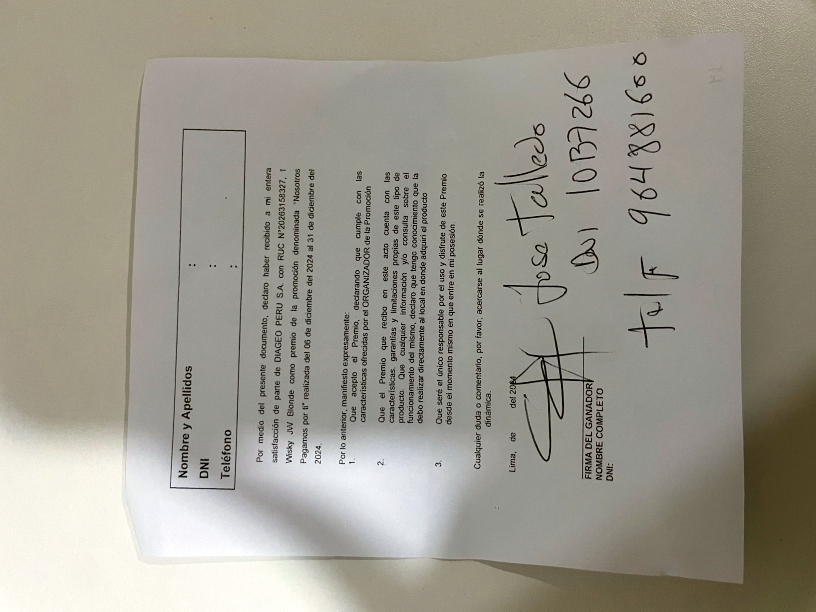 Nombre y Apellidos :
DNI :
Teléfono :
Por medio del presente documento, declaro haber recibido a mi entera
satisfacción de parte de DIAGEO PERU S.A. con RUC N°20263158327, 1
Wisky JW Blonde como premio de la promoción denominada "Nosotros
Pagamos por ti" realizada del 06 de diciembre del 2024 al 31 de diciembre del
2024.
Por lo anterior, manifiesto expresamente:
1. Que acepto el Premio, declarando que cumple con las
características ofrecidas por el ORGANIZADOR de la Promoción
2. Que el Premio que recibo en este acto cuenta con las
características, garantías y limitaciones propias de este tipo de
producto. Que cualquier información y/o consulta sobre el
funcionamiento del mismo, declaro que tengo conocimiento que la
debo realizar directamente al local en donde adquirí el producto
3. Que seré el único responsable por el uso y disfrute de este Premio
desde el momento mismo en que entre en mi posesión
Cualquier duda o comentario, por favor, acercarse al lugar dónde se realizó la
dinámica.
Lima, de del 2024
Jose Talledo
DNI 10137266
FIRMA DEL GANADOR
NOMBRE COMPLETO
DNI:
Telf 964881600